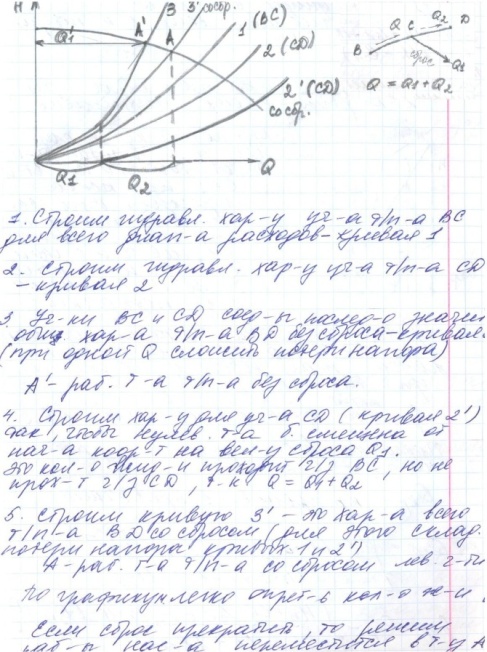 H
3
3' со сбр.
1 (ВС)
2 (CD)
2' (CD)
со сбр.
Q'1
A'
A
Q1
Q2
Q
B
Q
C
Q2
D
сброс
Q1
Q = Q1 + Q2
1. Строим гидравл. хар-у уч-а т/п-а ВС
для всего диап-а расходов - кривая 1
2. Строим гидравл. хар-у уч-а т/п-а CD
- кривая 2
3. Уч-ки ВС и CD соед-ы послед-о значит
общ. хар-а т/п-а BD без сброса - кривая
(при одной Q сложить потери напора)
A' - раб. т-а т/п-а без сброса.
4. Строим хар-у для уч-а CD (кривая 2')
так, чтобы нулев. т-а б. смещена от
нач-а коор-т на вел-у сброса Q1.
Это кол-о жид-и проходит ч/з ВС, но не
прох-т ч/з CD, т.к. Q = Q1 + Q2
5. Строим кривую 3' - это хар-а всего
т/п-а BD со сбросом (для этого склад.
потери напора кривых 1 и 2')
A - раб. т-а т/п-а со сбросом лев. ч-ти
По графику легко опред-ь кол-о ж-и
Если сброс прекратить то режим
раб-ы нас-а переместится в т-у A